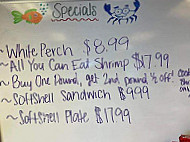 Specials
~White Perch $8.99
~All You Can Eat Shrimp $17.99
~Buy One Pound, get 2nd pound 1/2 off!
~Softshell Sandwich $9.99
~Softshell Plate $17.99